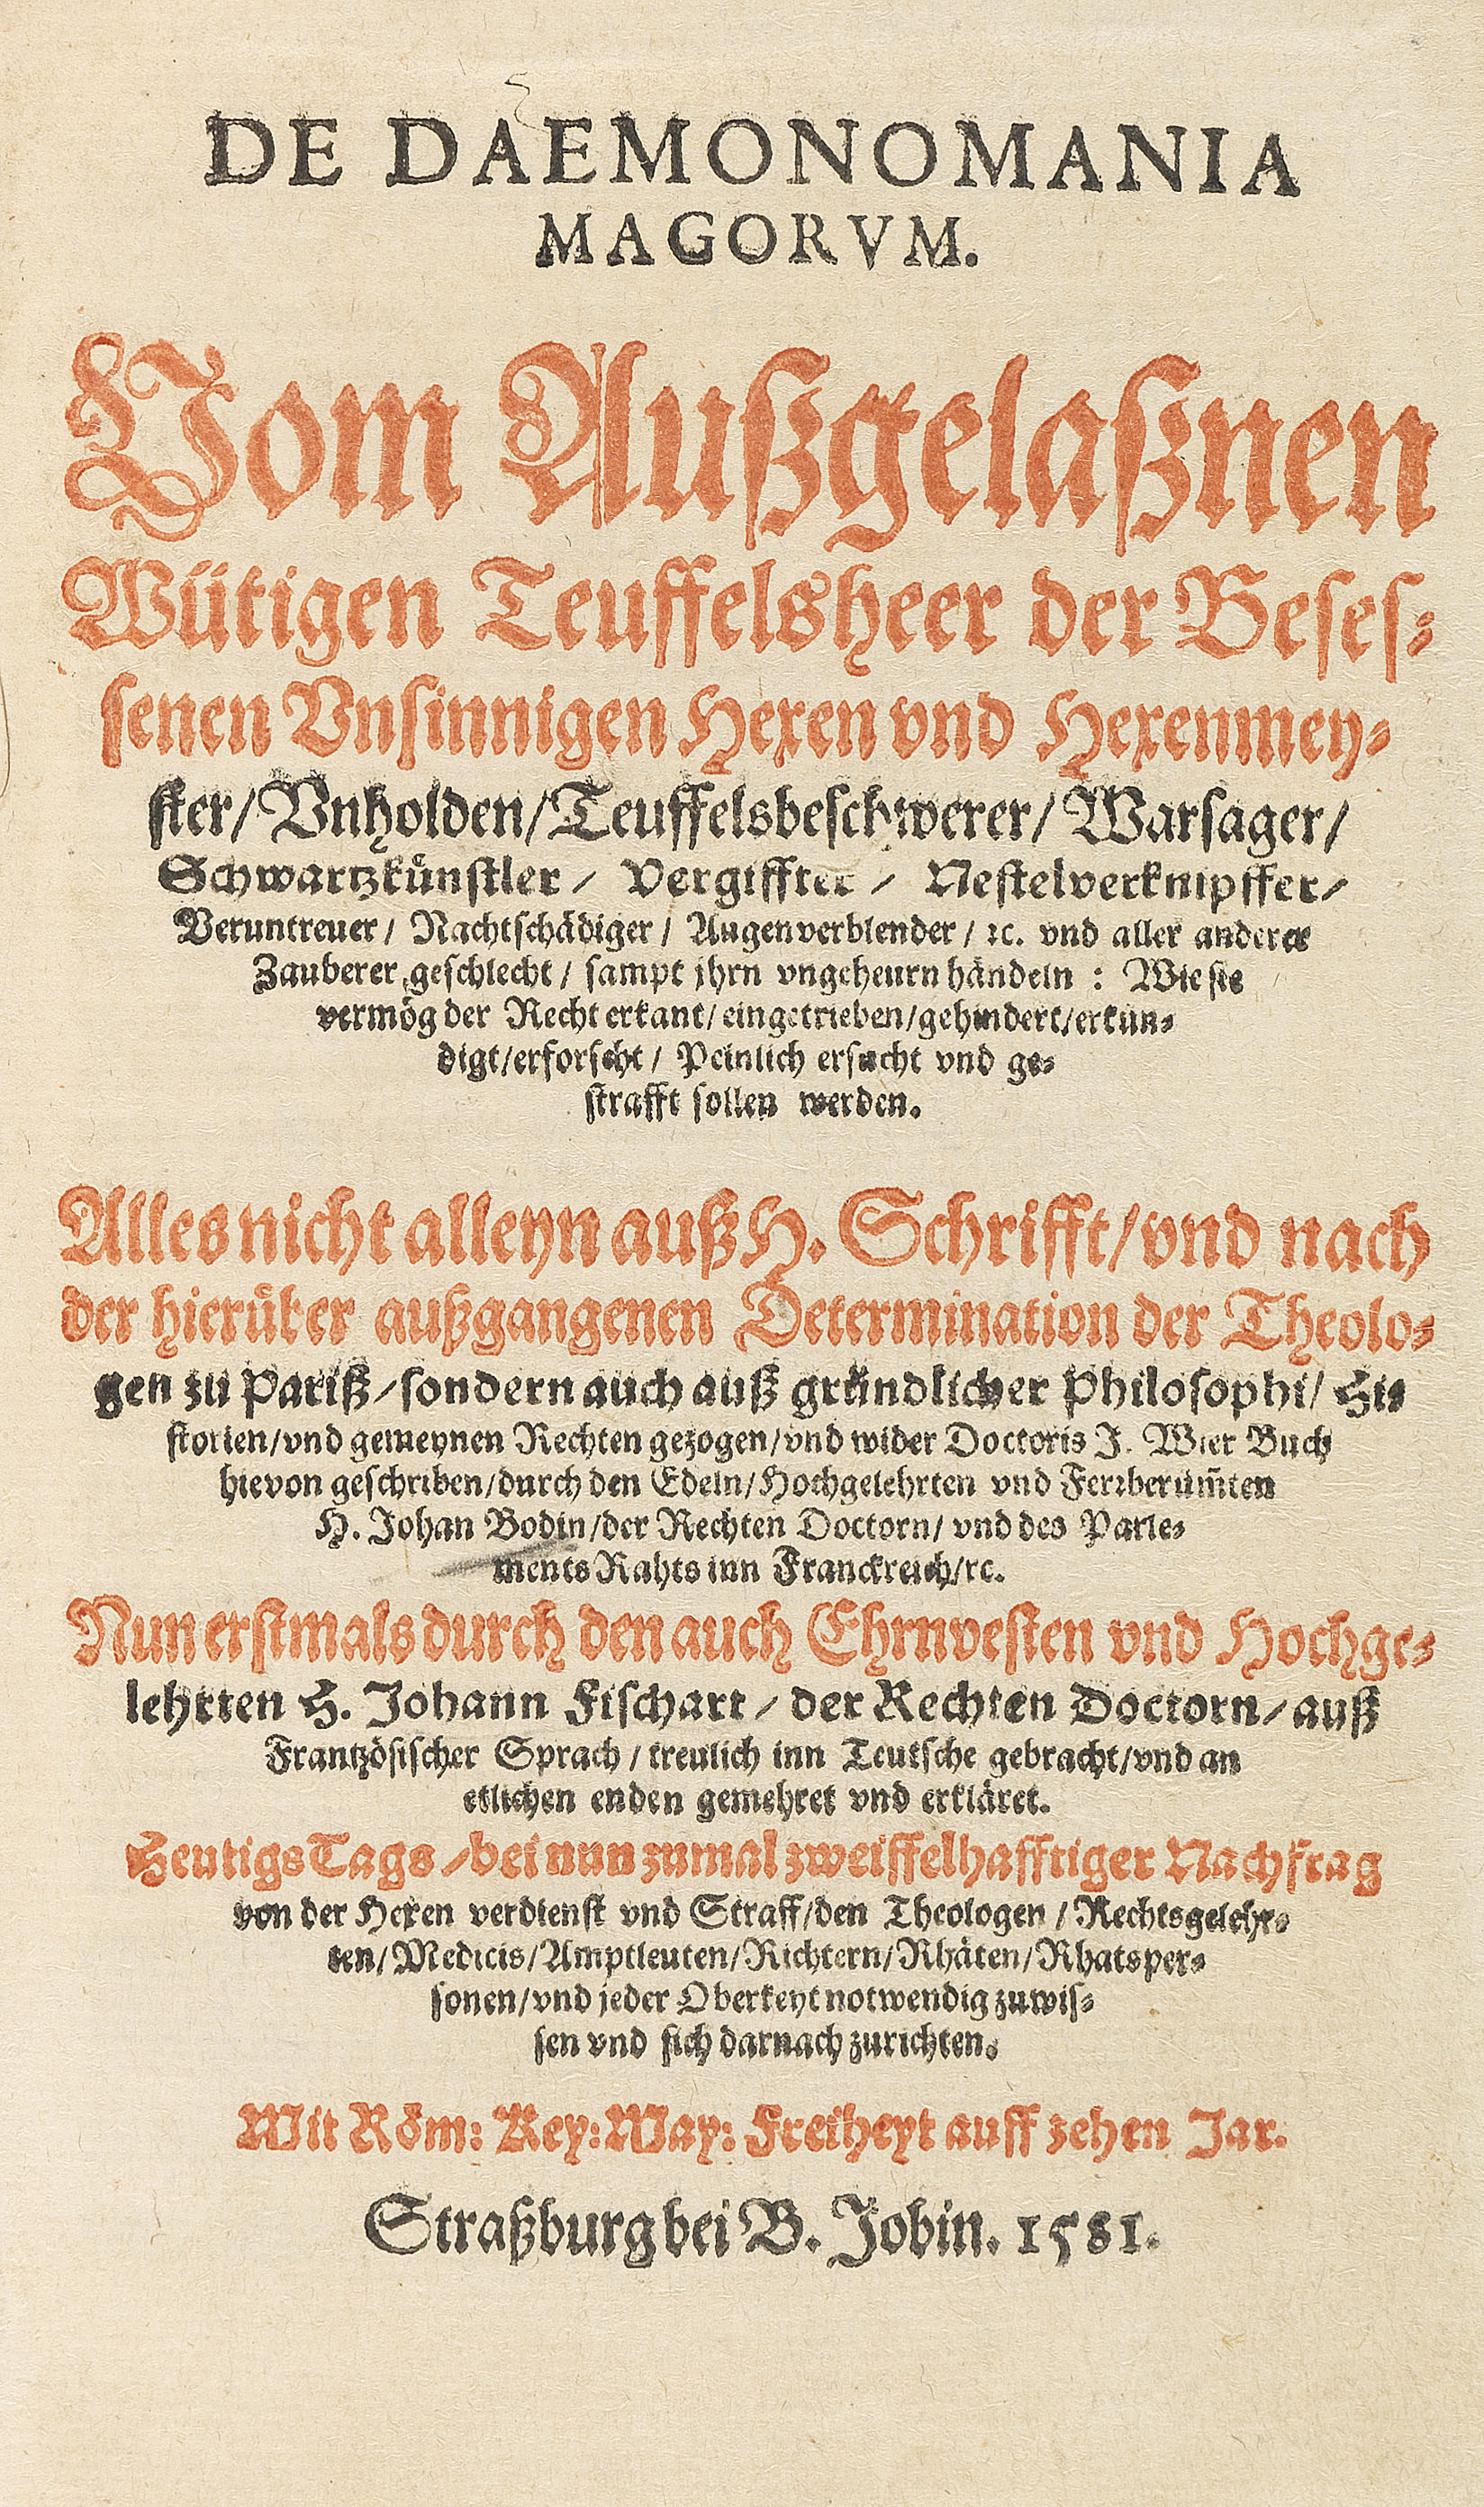 DE DAEMONOMANIA
MAGORVM.
Vom Außgelaßnen
Wütigen Teuffelsheer der Beses⸗
senen Vnsinnigen Hexen vnd Hexenmey⸗
ster/ Vnholden/ Teuffelsbeschwerer/ Warsager/
Schwartzkünstler / Vergiffter / Nestelverknipffer/
Veruntreuer / Nachtschädiger / Augenverblender / ꝛc. vnd aller anderer
Zauberer geschlecht / sampt jhrn vngeheurn händeln : Wie sie
vermög der Recht erkant/ eingetrieben/ gehindert/ erkün⸗
digt/ erforscht / Peinlich ersucht vnd ge⸗
strafft sollen werden.
Alles nicht alleyn auß H. Schrifft/ vnd nach
der hierüber außgangenen Determination der Theolo⸗
gen zu Pariß/ sondern auch auß gründlicher Philosophi/ Hi⸗
storien/ vnd gemeynen Rechten gezogen/ vnd wider Doctoris J. Wier Buch
hievon geschriben/ durch den Edeln/ Hochgelehrten vnd Ferrberüm̃ten
H. Johan Bodin/ der Rechten Doctorn/ vnd des Parle⸗
ments Rahts inn Franckreich/ ꝛc.
Nun erstmals durch den auch Ehrnvesten vnd Hochge⸗
lehrten H. Johann Fischart / der Rechten Doctorn/ auß
Frantzösischer Sprach / treulich inn Teutsche gebracht/ vnd an
etlichen enden gemehret vnd erkläret.
Heutigs Tags / bei nun zumal zweiffelhafftiger Nachfrag
von der Hexen verdienst vnd Straff/ den Theologen / Rechtsgelehr⸗
ten/ Medicis/ Amptleuten/ Richtern/ Rhäten/ Rhatsper⸗
sonen/ vnd jeder Oberkeyt notwendig zuwis⸗
sen vnd sich darnach zurichten.
Mit Röm: Key: May: Freiheyt auff zehen Jar.
Straßburg bei B. Jobin. 1581.